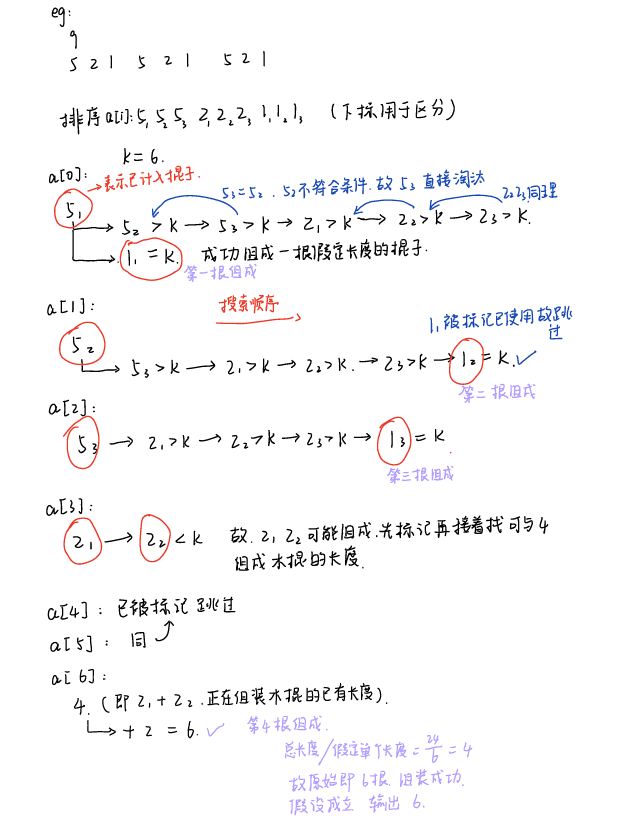 eg:
9
5 2 1 5 2 1 5 2 1
排序a[i]: 5₁ 5₂ 5₃ 2₁ 2₂ 2₃ 1₁ 1₂ 1₃ (下标用于区分)
k=6.
a[0]:
→表示已计入棍子.
5₃=5₂. 5₂不符合条件.故5₃直接淘汰
2₂2₃同理
5₁
→ 5₂ > k → 5₃ > k → 2₁ > k → 2₂ > k → 2₃ > k.
→ 1₁ = k. 成功组成一根假定长度的棍子.
第一根组成
a[1]:
搜索顺序
1₁被标记已使用故跳过
5₂
→ 5₃ > k → 2₁ > k → 2₂ > k. → 2₃ > k → 1₂ = k. ✓
第二根组成
a[2]:
5₃ → 2₁ > k → 2₂ > k → 2₃ > k → 1₃ = k.
第三根组成
a[3]:
2₁ → 2₂ < k 故.2₁ 2₂可能组成.先标记再接着找可与4
组成木棍的长度.
a[4]: 已被标记跳过
a[5]: 同
a[6]:
4. (即2₁+2₂.正在组装木棍的已有长度).
→ + 2 = 6. ✓ 第4根组成.
总长度/假定单个长度 = 24/6 = 4
故原始即6根.组装成功.
假设成立 输出 6.